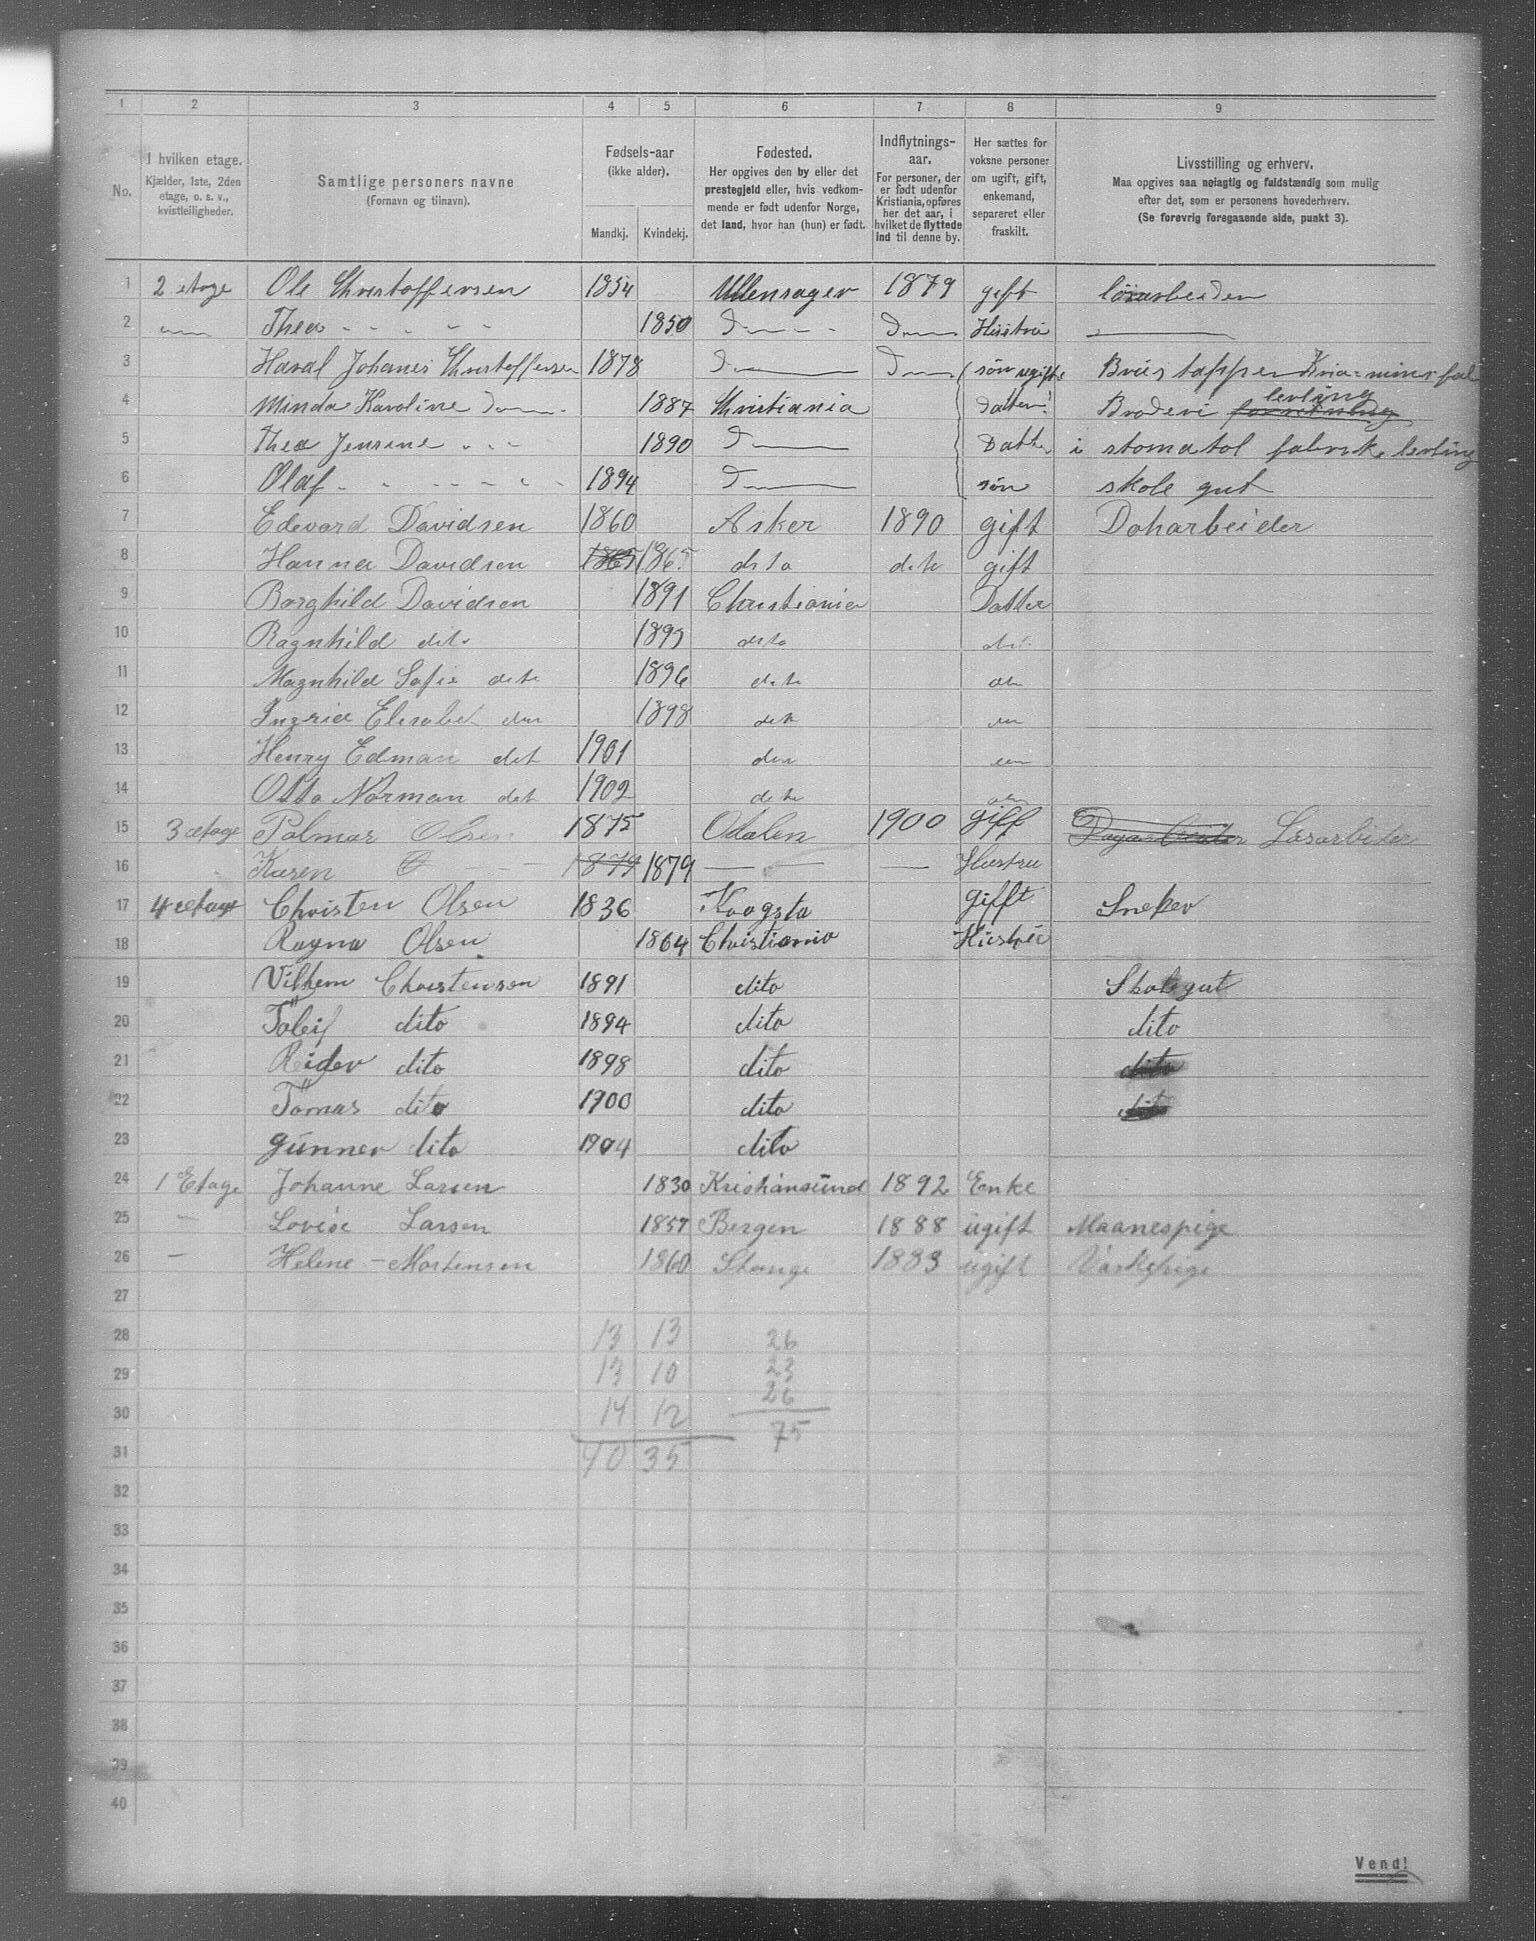 1 2 3 4 5 6 7 8 9
No.
I hvilken etage.
Kjælder, 1ste, 2den
etage, o. s. v.,
kvistleiligheder.
Samtlige personers navne
(Fornavn og tilnavn).
Fødsels-aar
(ikke alder).
Mandkj. Kvindekj.
Fødested.
Her opgives den by eller det
prestegjeld eller, hvis vedkom-
mende er født udenfor Norge,
det land, hvor han (hun) er født.
Indflytnings-
aar.
For personer, der
er født udenfor
Kristiania, opføres
her det aar, i
hvilket de flyttede
ind til denne by.
Her sættes for
voksne personer
om ugift, gift,
enkemand,
separeret eller
fraskilt.
Livsstilling og erhverv.
Maa opgives saa nøiagtig og fuldstændig som mulig
efter det, som er personens hovederhverv.
(Se forøvrig foregaaende side, punkt 3).
1 2 etage Ole Christoffersen 1854 Ullensager 1879 gift
2 Thea - - - - - 1850 D - D Hustru
3 Haral Johanes Christoffersen 1878 D D søn ugift
4 Minda Karoline D 1887 Christiania Datter Broderi levling
5 Thea Jensine - - 1890 D Datter i stomatol fabrik levling
6 Olaf - - - - - - 1894 D søn skole gut
7 Edevard Davidsen 1860 Asker 1890 gift Doharbeider
8 Hanna Davidsen 1865 1865 deto dete gift
9 Borghild Davidsen 1891 Christiania Datter
10 Ragnhild deto 1893 deto
11 Magnhild Sofie dete 1896 dete
12 Ingrid Elisabet 1898 dete
13 Henry Edman det 1901
14 Otto Norman det 1902 dete
15 3 etage Palmar Olsen 1875 Odalen 1900 gift Løsarbeider
16 Karen O - 1879 1879 — — — Hustru
17 4 etage Christen Olsen 1836 gifft Sneker
18 Ragna Olsen 1864 Christiania Hustru
19 Vilhem Christensen 1891 dito Skolegut
20 Toleif dito 1894 dito dito
21 Reider dito 1898 dito dito
22 Tomas dito 1900 dito dito
23 gunner dito 1904 dito
24 1 Etage Johanne Larsen 1830 Kristiansund 1892 Enke
25 — Lovise Larsen 1857 Bergen 1888 ugift Maanespige
26 — Helene - Mortensen 1860 Stange 1883 ugift Vaskepige
27
28 13 13 26
29 13 10 23
30 14 12 26
31 40 35 75
32
33
34
35
36
37
38
39
40
Vend!